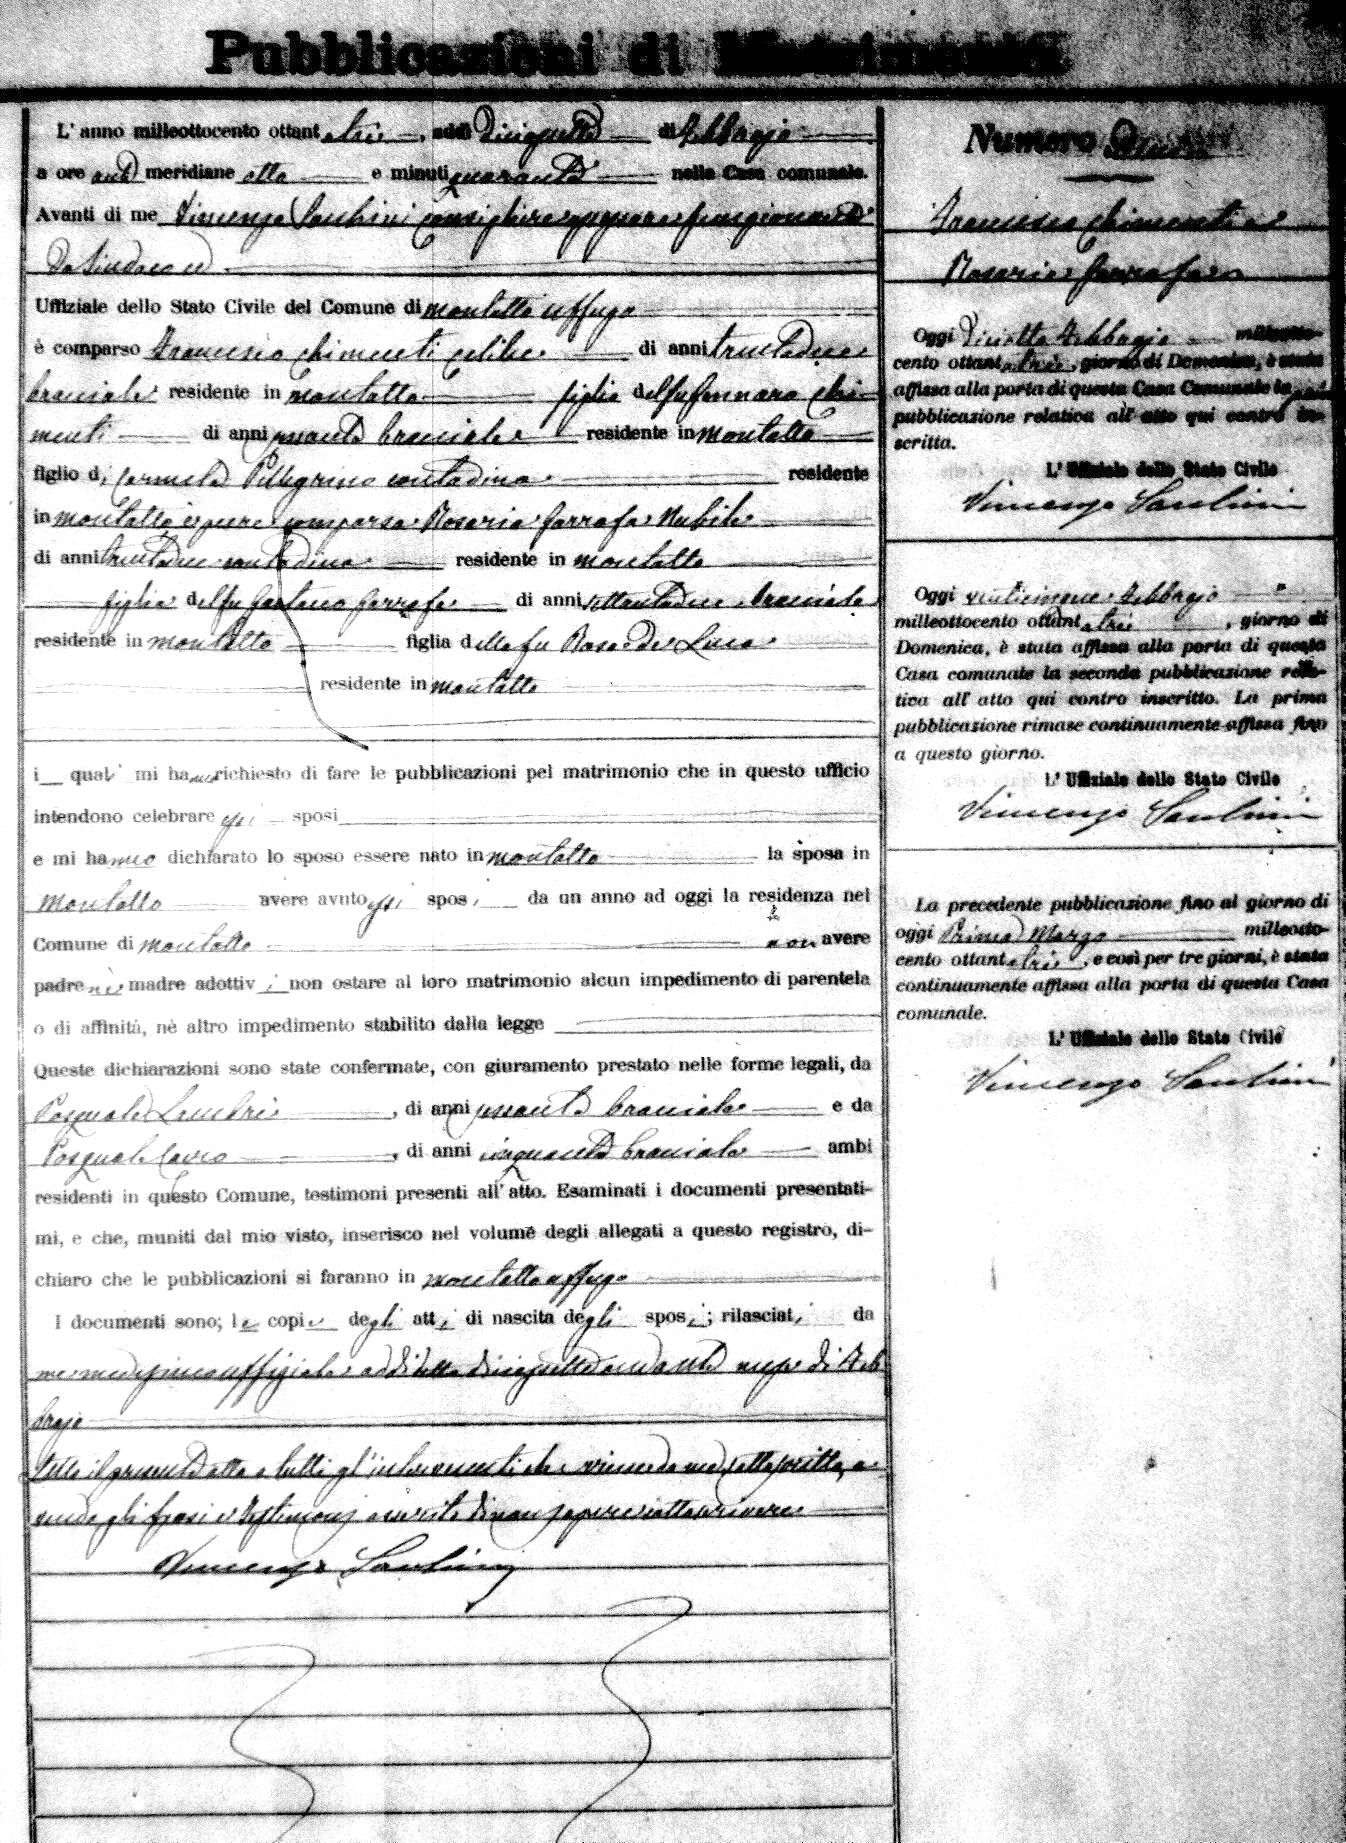 Pubblicazioni di Matrimonio
L'anno milleottocento ottantatre, addì diciasette di Febbrajo
a ore anti meridiane otto e minuti quaranta nella Casa comunale.
Avanti di me Vincenzo consigliere funzionante
da Sindaco ed
Uffiziale dello Stato Civile del Comune di Montalto Uffugo
è comparso Francesco Chimenti celibe di anni trentadue
bracciale residente in Montalto figlio del fu Gennaro Chi-
menti di anni sessanta bracciale residente in Montalto
figlio di Carmela Pellegrino contadina residente
in Montalto è pure comparsa Rosaria Garrafa Nubile
di anni trentadue contadina residente in Montalto
figlia del fu Gaetano Garrafa di anni settantadue bracciale
residente in Montalto figlia della fu Rosa de Luca
residente in Montalto
i quali mi hanno richiesto di fare le pubblicazioni pel matrimonio che in questo ufficio
intendono celebrare essi sposi
e mi hanno dichiarato lo sposo essere nato in Montalto la sposa in
Montalto avere avuto essi sposi da un anno ad oggi la residenza nel
Comune di Montalto non avere
padre nè madre adottivi non ostare al loro matrimonio alcun impedimento di parentela
o di affinità, nè altro impedimento stabilito dalla legge
Queste dichiarazioni sono state confermate, con giuramento prestato nelle forme legali, da
Pasquale, di anni sessanta bracciale e da
Pasquale, di anni cinquanta bracciale ambi
residenti in questo Comune, testimoni presenti all'atto. Esaminati i documenti presentati-
mi, e che, muniti dal mio visto, inserisco nel volume degli allegati a questo registro, di-
chiaro che le pubblicazioni si faranno in Montalto Uffugo
I documenti sono; le copie degli atti di nascita degli sposi; rilasciati da
me medesimo uffiziale addì detto diciasette andante mese di Feb
brajo
Letto il presente atto a tutti gl'intervenuti che viene da me sottoscritto, a
vendo gli sposi e testimonj asserito di non sapere sottoscrivere
Vincenzo
Numero
Francesco Chimenti e
Rosaria Garrafa
Oggi diciotto Febbrajo milleotto-
cento ottantatre, giorno di Domenica, è stata
affissa alla porta di questa Casa Comunale la
pubblicazione relativa all'atto qui contro in-
scritto.
L'Uffiziale dello Stato Civile
Vincenzo
Oggi venticinque Febbrajo
milleottocento ottantatre, giorno di
Domenica, è stata affissa alla porta di questa
Casa comunale la seconda pubblicazione rela-
tiva all'atto qui contro inscritto. La prima
pubblicazione rimase continuamente affissa fino
a questo giorno.
L'Uffiziale dello Stato Civile
Vincenzo
La precedente pubblicazione fino al giorno di
oggi Primo Marzo milleotto-
cento ottantatre, e così per tre giorni, è stata
continuamente affissa alla porta di questa Casa
comunale.
L'Uffiziale dello Stato Civile
Vincenzo